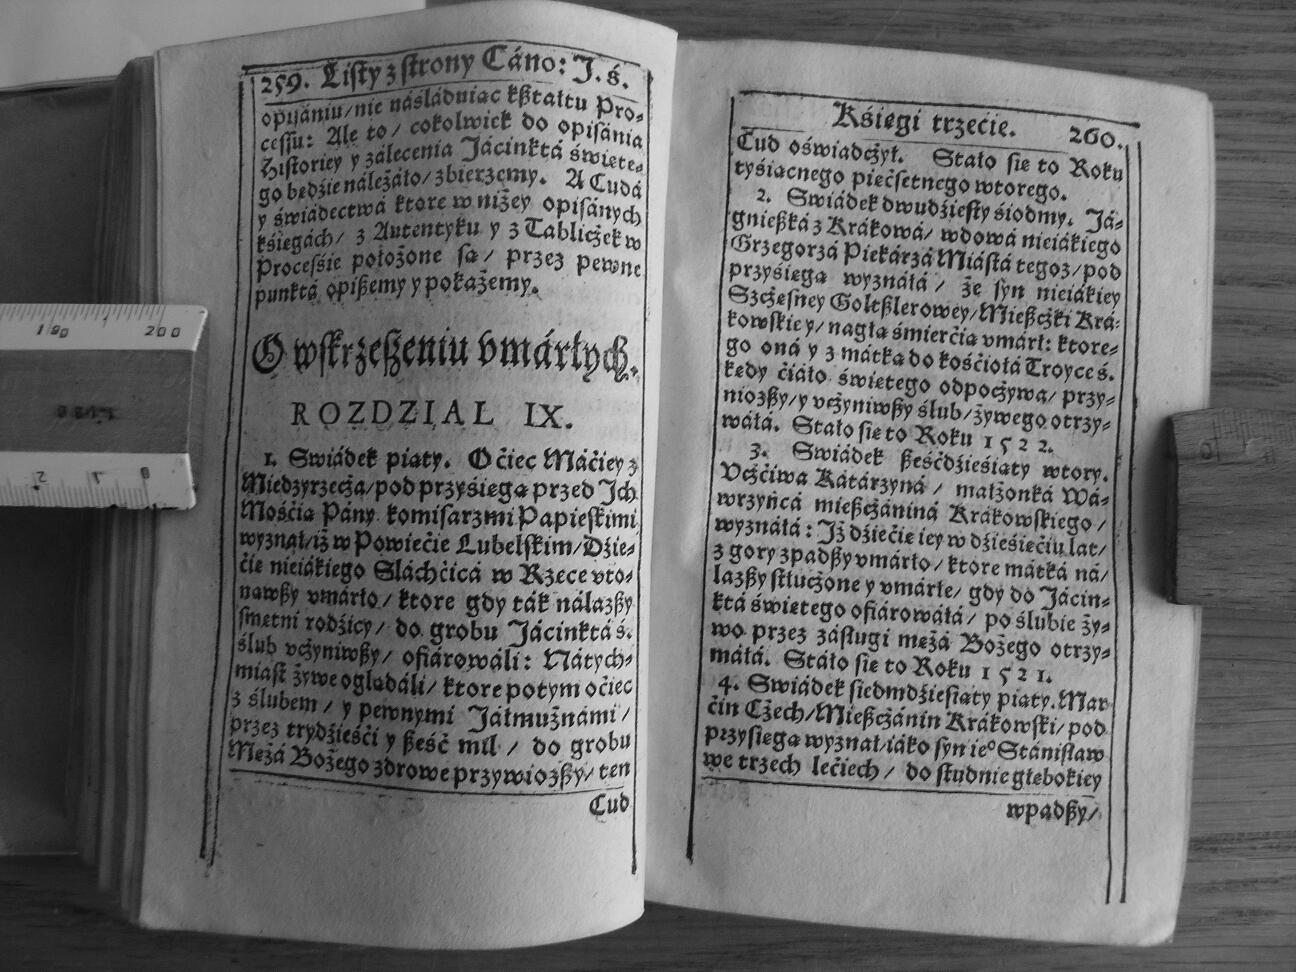 259. Listy z strony Cáno: J. ś.
opisániu/ nie násláduiac kształtu Pro-
cessu: Ale to/ cokolwiek do opisánia
Historiey y zálecenia Jácinktá świete-
go bedzie należáło/ zbierzemy. A Cudá
y świádectwá ktore w niżey opisánych
kśiegách/ z Autentyku y z Tabliczek w
Procesśie położone sa/ przez pewne
punktá opiszemy y pokażemy.
O wskrzeszeniu vmárłych.
ROZDZIAŁ IX.
1. Swiádek piąty. Oćiec Máćiey z
Miedzyrzecza/ pod przyśiega przed Jch
Mośćia Pány komisarzmi Papieskimi
wyznał/ iż w Powiećie Lubelskim/ Dźie-
ćie nieiákiego Sláchćicá w Rzece vto-
nawszy vmárło/ ktore gdy ták nálazszy
smetni rodźicy/ do grobu Jácinktá ś.
ślub vczyniwszy/ ofiárowáli: Nátych-
miast żywe ogladáli/ ktore potym oćiec
z ślubem/ y pewnymi Jáłmużnámi/
przez trydźieśći y sześć mil/ do grobu
Mężá Bożego zdrowe przywiozszy/ ten
Cud
Kśiegi trzećie. 260.
Cud oświadczył. Stało sie to Roku
tyśiacnego piećsetnego wtorego.
2. Swiádek dwudźiesty śiodmy. Já-
gnieszká z Krákowá/ wdowá nieiákiego
Grzegorzá Piekárzá Miástá tegoż/ pod
przyśiega wyznáłá/ że syn nieiákiey
Szczesney Goltszlerowey/ Mieszczki Krá-
kowskiey/ nagła śmierćia vmárł: ktore-
go oná y z mátka do kośćiołá Troyce ś.
kedy ćiáło świetego odpoczywa/ przy-
niozszy/ y vczyniwszy ślub/ żywego otrzy-
wáłá. Stało sie to Roku 1522.
3. Swiádek sześćdźieśiaty wtory.
Vczćiwa Kátárzyná/ małżonká Wá-
wrzyńcá mieszczániná Krákowskiego/
wyznáłá: Jż dźiećie iey w dźieśiećiu lat/
z gory zpadszy vmárło/ ktore mátká ná-
lazszy stłuczone y vmárłe/ gdy do Jácin-
ktá świetego ofiárowáłá/ po ślubie ży-
wo przez zásługi mężá Bożego otrzy-
máłá. Stáło sie to Roku 1521.
4. Swiádek siedmdźieśiaty piaty. Mar
ćin Czech/ Mieszczánin Krákowski/ pod
przysiega wyznał/ iáko syn ie° Stánisław
we trzech lećiech/ do studnie głebokiey
wpadszy/
180 200